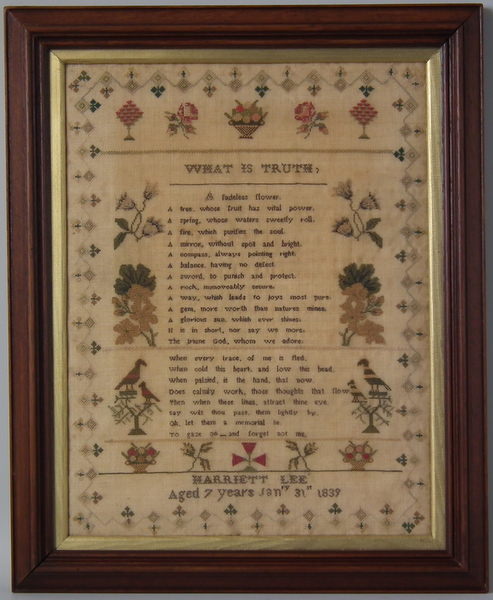 WHAT IS TRUTH,
A fadeless flower.
A tree, whose fruit has vital power.
A spring, whose waters sweetly roll.
A fire, which purifies the soul.
A mirror, without spot and bright.
A compass, always pointing right.
A balance, having no defect.
A sword, to punish and protect.
A rock, immoveably secure.
A way, which leads to joys most pure.
A gem, more worth than natures mines.
A glorious sun, which ever shines.
It is in short, nor say we more,
The triune God, whom we adore.
When every trace, of me is fled,
When cold this heart, and low this head,
When palsied, is the hand, that now
Does calmly work, those thoughts that flow
Then when these lines, attract thine eye,
Say wilt thou pass, them lightly by,
Oh, let them a memorial be
To gaze on and forget not me,
HARRIETT LEE
Aged 7 years Janry 31st 1839